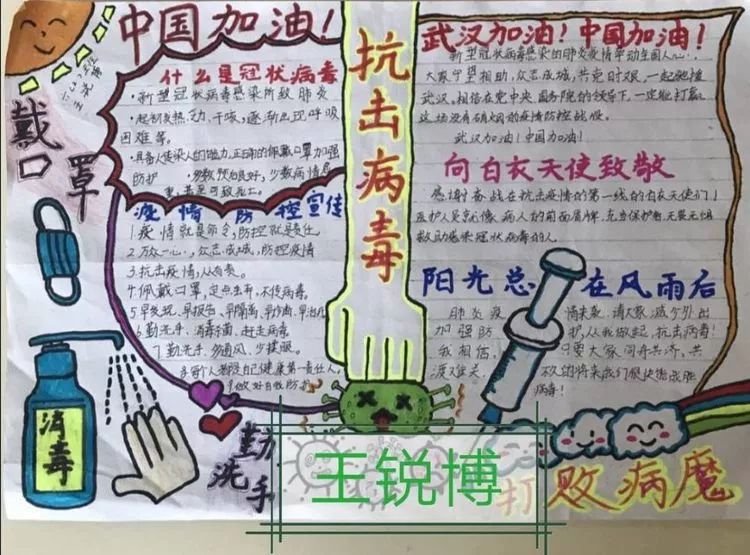 中国加油!
武汉加油!中国加油!
什么是冠状病毒
·新型冠状病毒感染所致肺炎
·起初发热、乏力、干咳,逐渐出现呼吸
困难等。
·具备人传人的能力,正确的佩戴口罩加强
防护 ·多数预后良好,少数病情危
重,甚至可致死亡。
疫情防控宣传
1.疫情就是命令,防控就是责任
2.万众一心,众志成城,防控疫情
3.抗击疫情,人人有责。
4.佩戴口罩,定点丢弃,不传病毒。
5.早发现,早报告,早隔离,早诊断,早治疗
6.勤洗手、消毒杀菌,赶走病毒
7.勤洗手、多通风、少摸眼。
健康第一责任人,
做好自我防护
戴口罩
消毒
勤洗手
抗击病毒
新型冠状病毒感染的肺炎疫情牵动全国人心,
大家守望相助,众志成城,共克时艰,一起驰援
武汉,相信在党中央国务院的领导下,一定能打赢
这场没有硝烟的疫情防控战役。
武汉加油!中国加油!
向白衣天使致敬
感谢奋战在抗击疫情的第一线的白衣天使们!
医护人员就像病人的前面盾牌,充当保护者,无畏无惧
救助感染冠状病毒的人。
阳光总在风雨后
肺炎疫情来袭,请大家减少外出
加强防护,从我做起,抗击病毒!
我相信,只要大家同舟共济,共
渡难关,不久的将来我们很快能战胜
病毒!
王锐博
打败病魔